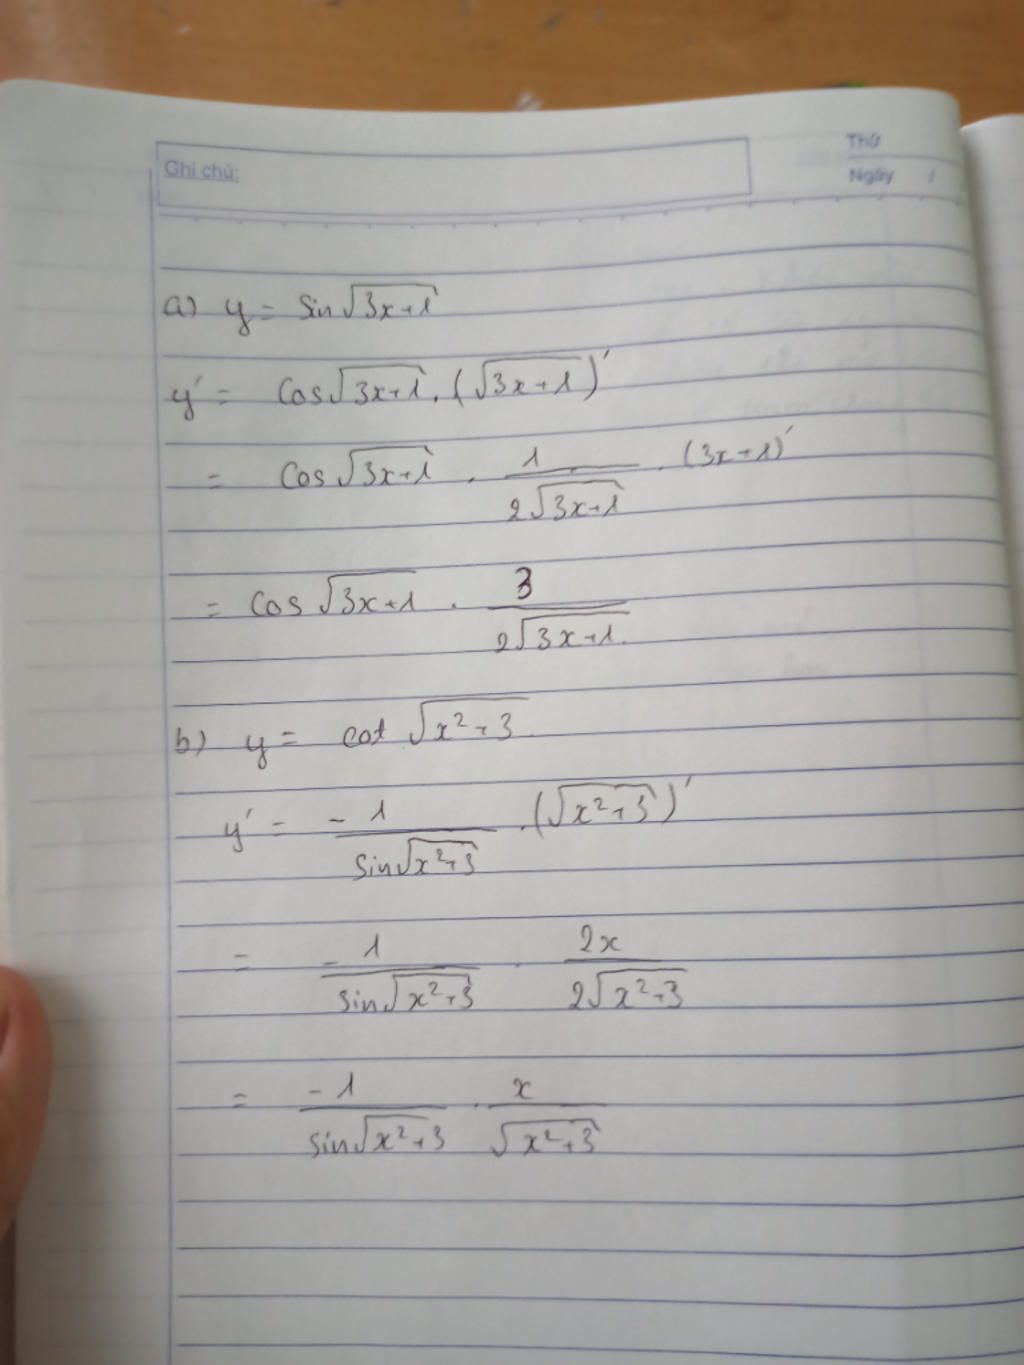 Ghi chú:
Thứ
Ngày /
a) y = sin√(3x+1)
y' = cos√(3x+1) . (√(3x+1))'
= cos√(3x+1) . 1/(2√(3x+1)) . (3x+1)'
= cos√(3x+1) . 3/(2√(3x+1))
b) y = cot √(x²+3)
y' = -1/(sin√(x²+3)) . (√(x²+3))'
= -1/(sin√(x²+3)) . 2x/(2√(x²+3))
= -1/(sin√(x²+3)) . x/(√(x²+3))